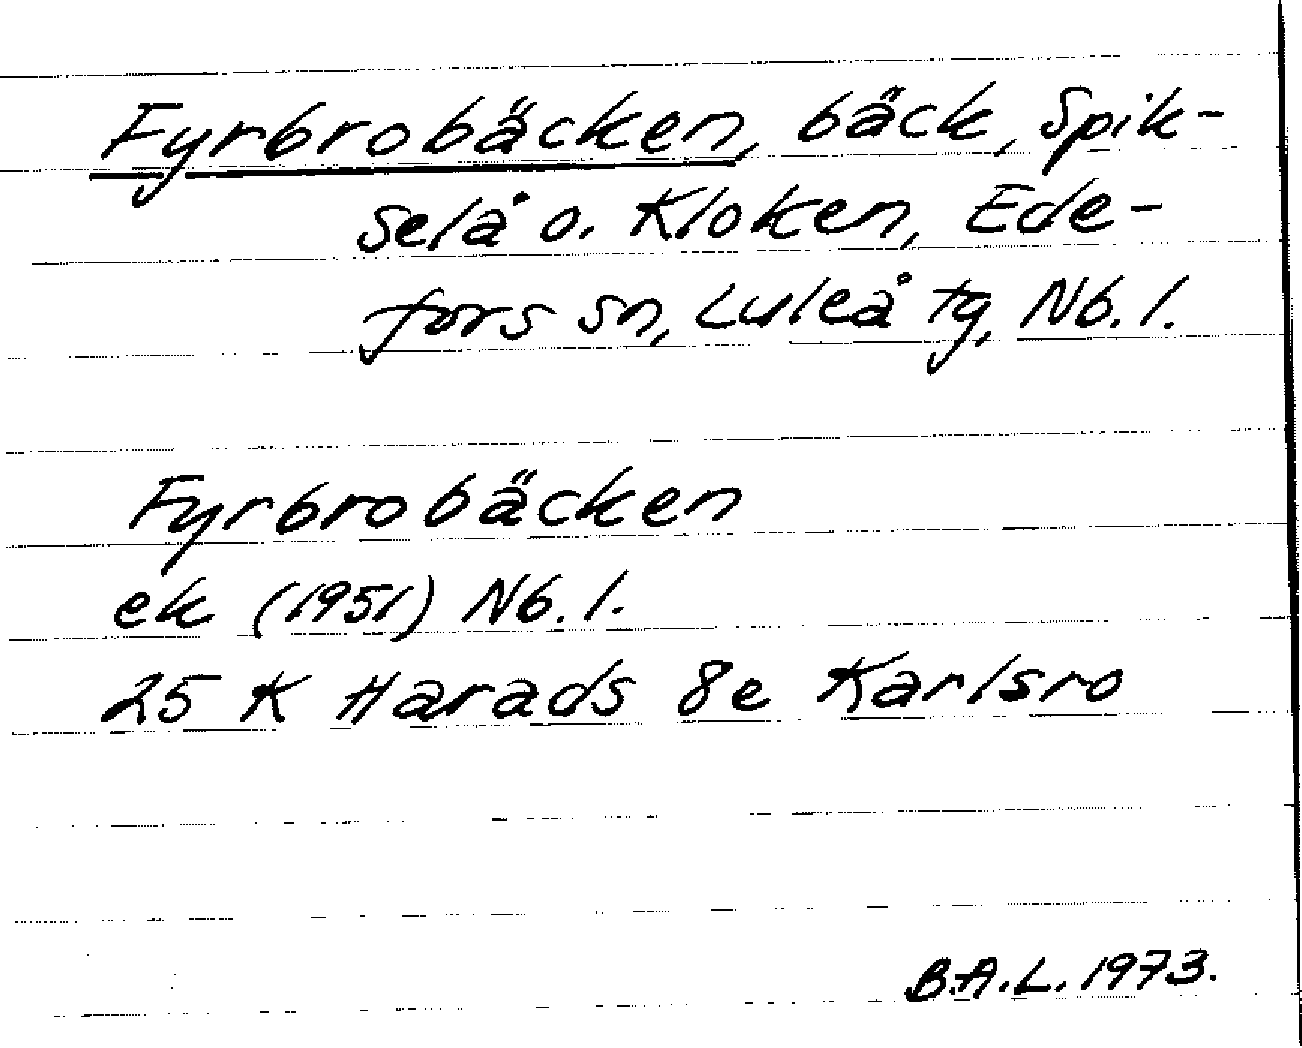 Fyrbrobäcken, bäck, Spik-
selå o. Kloken, Ede-
fors sn, Luleå tg, Nb. l.
Fyrbrobäcken
ek (1951) Nb. l.
25 K Harads 8e Karlsro
B.A.L. 1973.